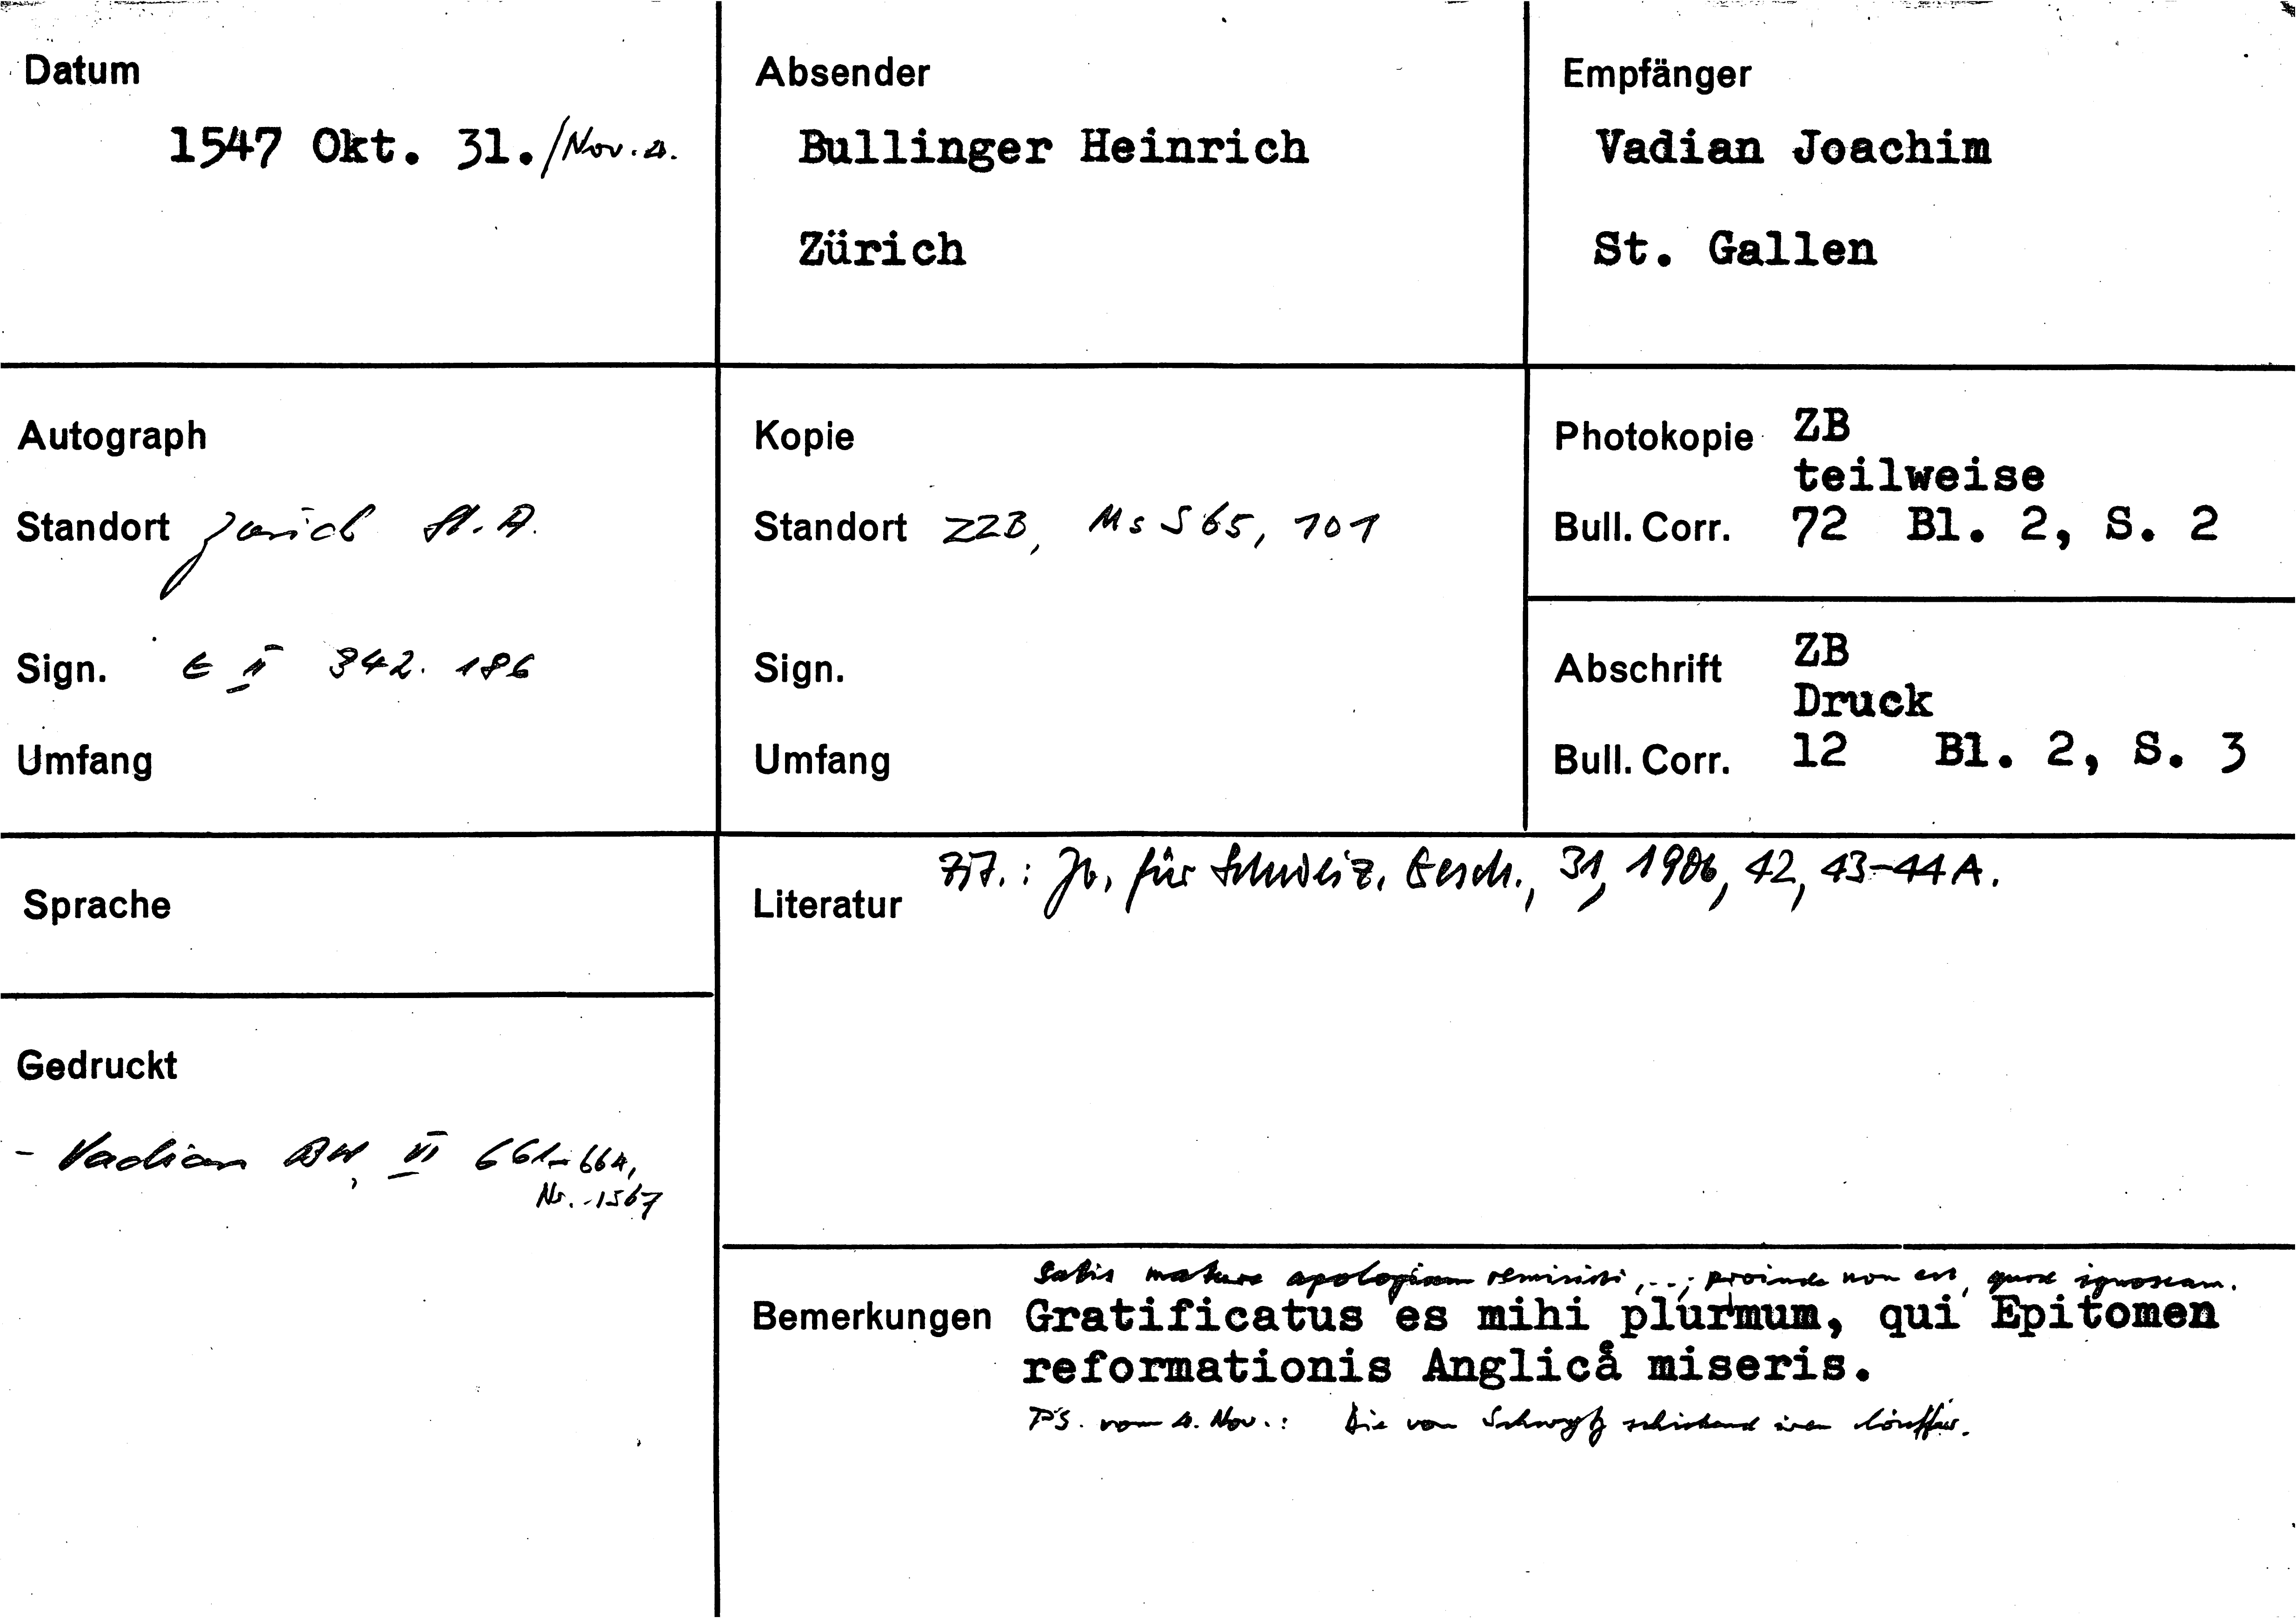 Datum
1547 Okt. 31./Nov. 4.
Absender
Bullinger Heinrich
Zürich
Empfänger
Vadian Joachim
St. Gallen
Autograph
Standort Zürich St. A.
Sign. E II 342. 186
Umfang
Kopie
Standort ZZB, Ms S 65, 101
Sign.
Umfang
Photokopie ZB
teilweise
Bull. Corr. 72 Bl. 2, S. 2
Abschrift ZB
Druck
Bull. Corr. 12 Bl. 2, S. 3
Sprache
Literatur Jb. für Schweiz. Gesch., 31, 1906, 42, 43-44 A.
Gedruckt
- Vadian BW, VI 661-664,
Nr. 1567
Satis mature apologiam remisisti, ..; proinde non est, quod ignoscam.
Bemerkungen Gratificatus es mihi plurimum, qui Epitomen
reformationis Anglicå miseris.
PS. vom 4. Nov.: Die von Schwytz schickend iren löuffer.